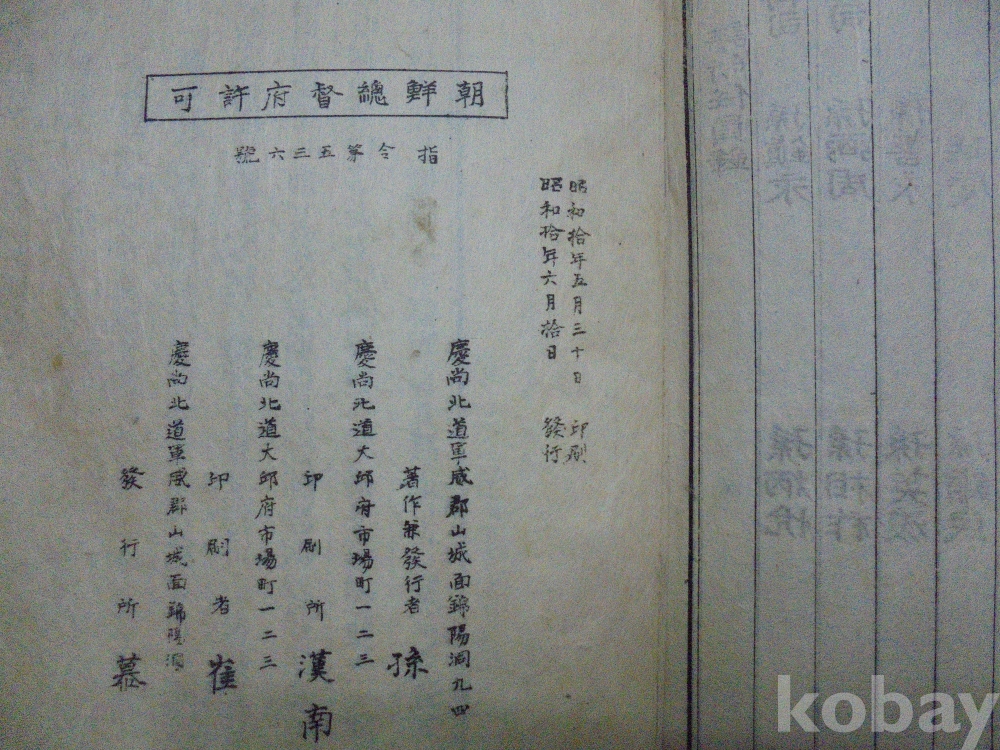 朝鮮總督府許可
指令第五三六號
昭和拾年五月三十日 印刷
昭和拾年六月拾日 發行
慶尚北道軍威郡山城面錦陽洞九四
著作兼發行者 孫
慶尚北道大邱府市場町一二三
印刷所 漢南
慶尚北道大邱府市場町一二三
印刷者 崔
慶尚北道軍威郡山城面錦陽洞
發行所 慕
kobay